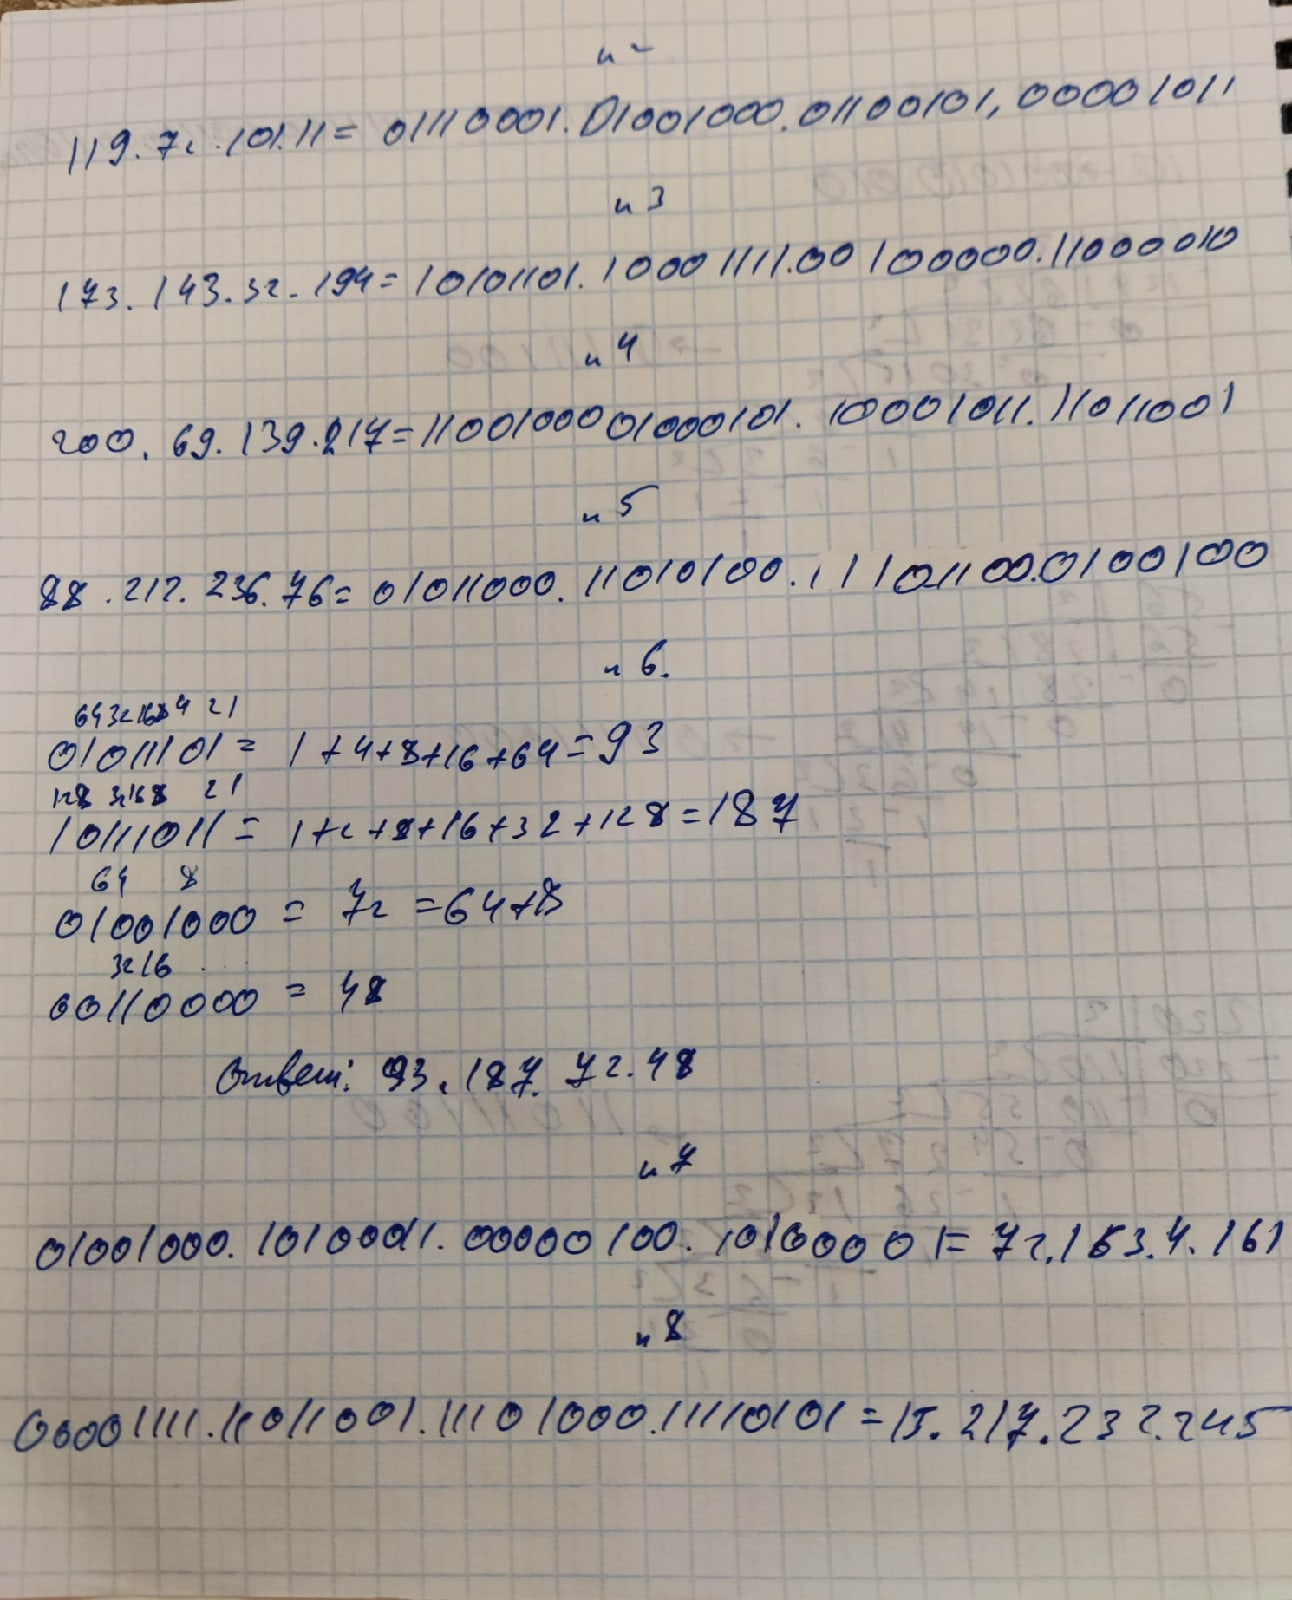 n 2
119.72.101.11 = 01110001.01001000.01100101,00001011
n 3
173.143.32.194 = 10101101.10001111.00100000.11000010
n 4
200.69.139.217 = 11001000 01000101.10001011.11011001
n 5
88.212.236.76 = 01011000.11010100.11101100.0100100
n 6.
64 32 16 8 4 2 1
01011101 = 1+4+8+16+64=93
128 32 16 8 2 1
10111011 = 1+2+8+16+32+128=187
64 8
01001000 = 72 =64+8
32 16
00110000 = 48
Ответ: 93.187.72.48
n 7
01001000.1010001.00000100.10100001= 72.163.4.161
n 8
00001111.11011001.11101000.11110101 =15.217.232.245